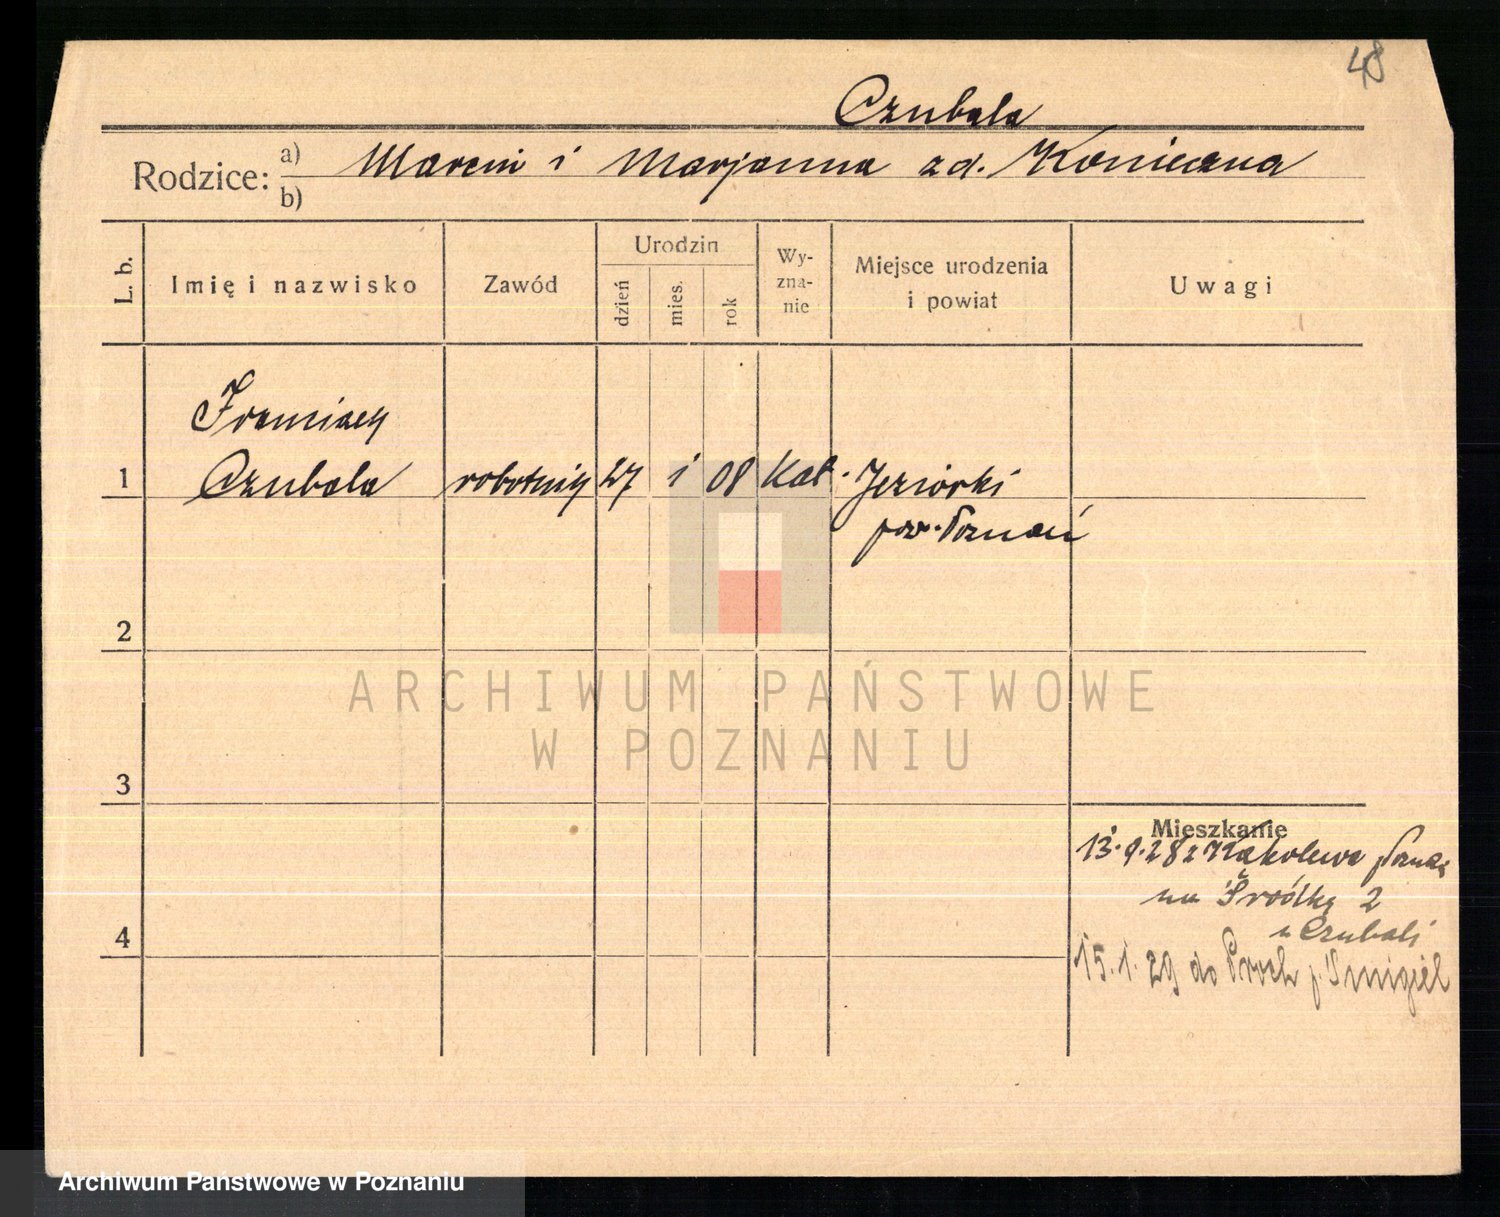 48
Czubala
Rodzice: a) Marcin i Marjanna zd. Konieczna
b)
L. b.
Imię i nazwisko
Zawód
Urodzin
dzień
mies.
rok
Wy-
zna-
nie
Miejsce urodzenia
i powiat
Uwagi
Franciszek
1 Czubala robotnik 27 i 08 Kat. Jeziorki
pow. Poznań
2
ARCHIWUM PAŃSTWOWE
W POZNANIU
3
Mieszkanie
13.9.28 z Kąkolewa
na Śródkę 2
u Czubali
4
15.1.29 do Proch p. Śmigiel
Archiwum Państwowe w Poznaniu